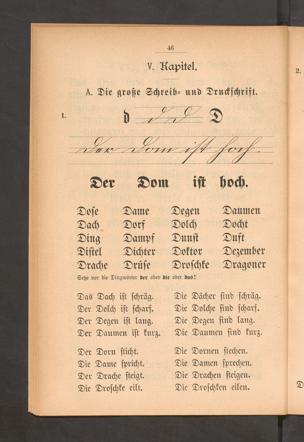 46
V. Kapitel.
A. Die große Schreib- und Druckschrift.
1. d d D D
Der Dom ist hoch.
Der Dom ist hoch.
Dose Dame Degen Daumen
Dach Dorf Dolch Docht
Ding Dampf Dunst Duft
Distel Dichter Doktor Dezember
Drache Drüse Droschke Dragoner
Setze vor die Dingwörter der oder die oder das!
Das Dach ist schräg. Die Dächer sind schräg.
Der Dolch ist scharf. Die Dolche sind scharf.
Der Degen ist lang. Die Degen sind lang.
Der Daumen ist kurz. Die Daumen sind kurz.
Der Dorn sticht. Die Dornen stechen.
Die Dame spricht. Die Damen sprechen.
Der Drache steigt. Die Drachen steigen.
Die Droschke eilt. Die Droschken eilen.
2.